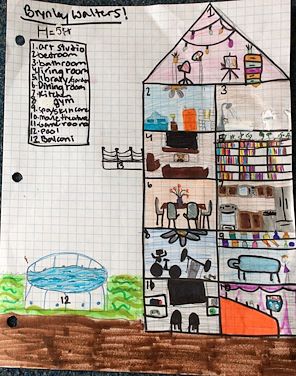 Brynley Walters!
H=5ft
1. art studio
2. bedroom
3. bathroom
4. living room
5. library
6. Dining room
7. Kitchen
8. gym
9. spa/skincare
10. movie theatre
11. game room
12. Pool
13. Balconi
1
2
3
4
13
6
8
12
10